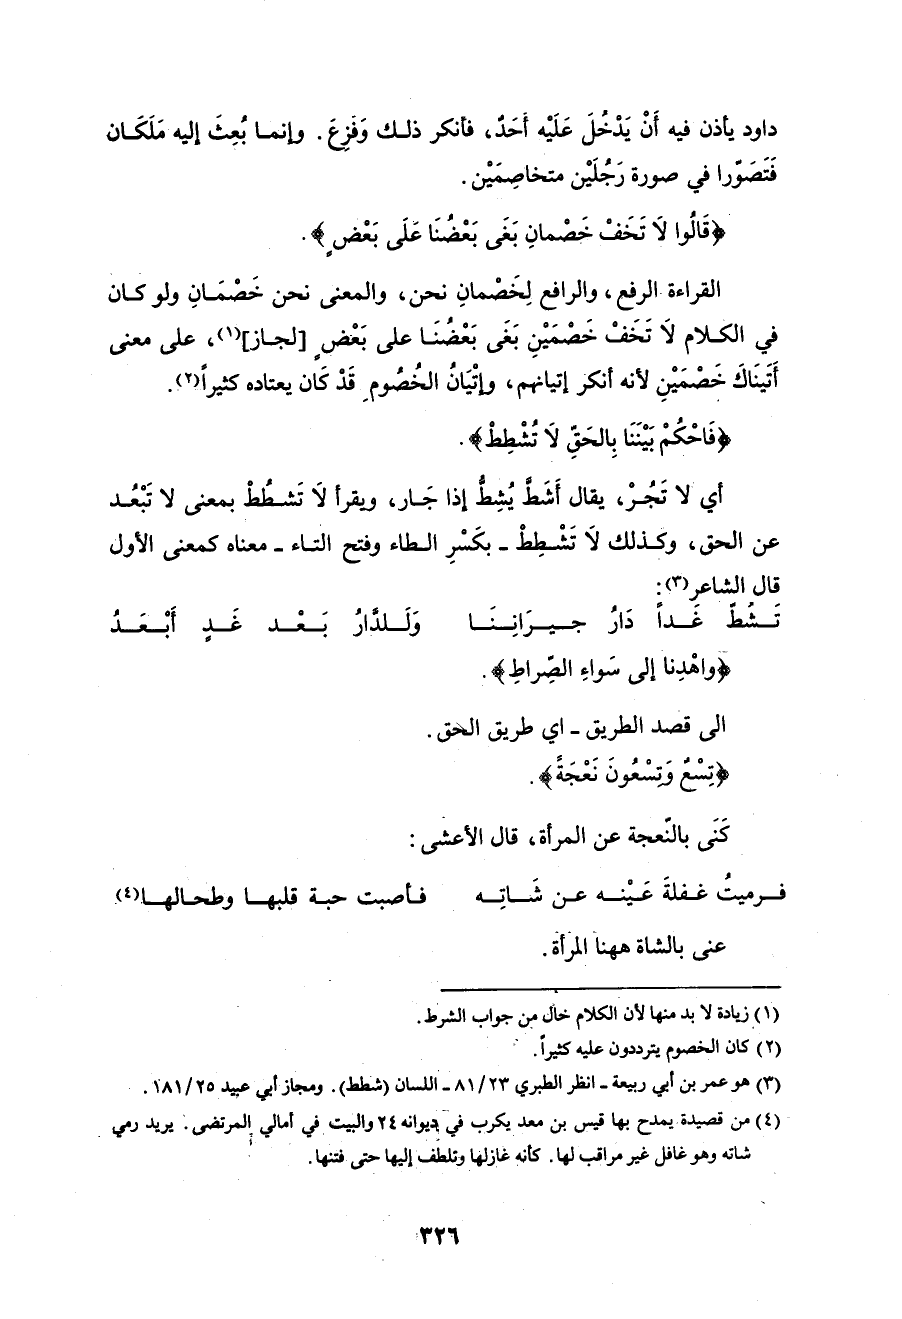 داود يأذن فيه أَنْ يَدْخُلَ عَلَيْه أَحَدٌ، فأنكر ذلك وَفَزِعَ. وإنما بُعِثَ إليه مَلَكَان
فَتَصَوّرا في صورة رَجُلَيْن متخاصِمَيْن.
﴿قَالُوا لَا تَخَفْ خَصْمانِ بَغَى بَعْضُنَا عَلَى بَعْضٍ﴾.
القراءة الرفع، والرافع لِخَصْمانِ نحن، والمعنى نحن خَصْمَانِ ولو كان
في الكلام لَا تَخَفْ خَصْمَيْنِ بَغَى بَعْضُنَا على بَعْضٍ [لجاز](١)، على معنى
أَتَينَاكَ خَصْمَيْنِ لأنه أنكر إتيانهم، وإتْيَانُ الخُصُومِ قَدْ كَان يعتاده كثيراً(٢).
﴿فَاحْكُمْ بَيْنَنَا بِالحَقِّ لَا تُشْطِطْ﴾.
أي لا تَجُرْ، يقال أَشَطَّ يُشِطُّ إذا جَار، ويقرأ لَا تَشطُطْ بمعنى لا تَبْعُد
عن الحق، وكذلك لَا تَشْطِطْ ـ بكَسْرِ الطاء وفتح التاء ـ معناه كمعنى الأول
قال الشاعر(٣):
تَشُطّ غَداً دَارُ جيرَانِنَا وَلَلدَّارُ بَعْد غَدٍ أَبْعَدُ
﴿واهْدِنا إلى سَواءِ الصِّراطِ﴾.
الى قصد الطريق ـ اي طريق الحق.
﴿تِسْعٌ وَتِسْعُونَ نَعْجَةً﴾.
كَنَى بالنّعجة عن المرأة، قال الأعشى:
فرميتُ غفلةَ عَيْنه عن شَاتِه فأصبت حبة قلبها وطحالها(٤)
عنى بالشاة ههنا المرأة.
(١) زيادة لا بد منها لأن الكلام خال من جواب الشرط.
(٢) كان الخصوم يترددون عليه كثيراً.
(٣) هو عمر بن أبي ربيعة ـ انظر الطبري ٨١/٢٣ ـ اللسان (شطط). ومجاز أبي عبيد ١٨١/٢٥.
(٤) من قصيدة يمدح بها قيس بن معد يكرب في ديوانه ٢٤ والبيت في أمالي المرتضى. يريد رمي
شاته وهو غافل غير مراقب لها. كأنه غازلها وتلطف إليها حتى فتنها.
٣٢٦